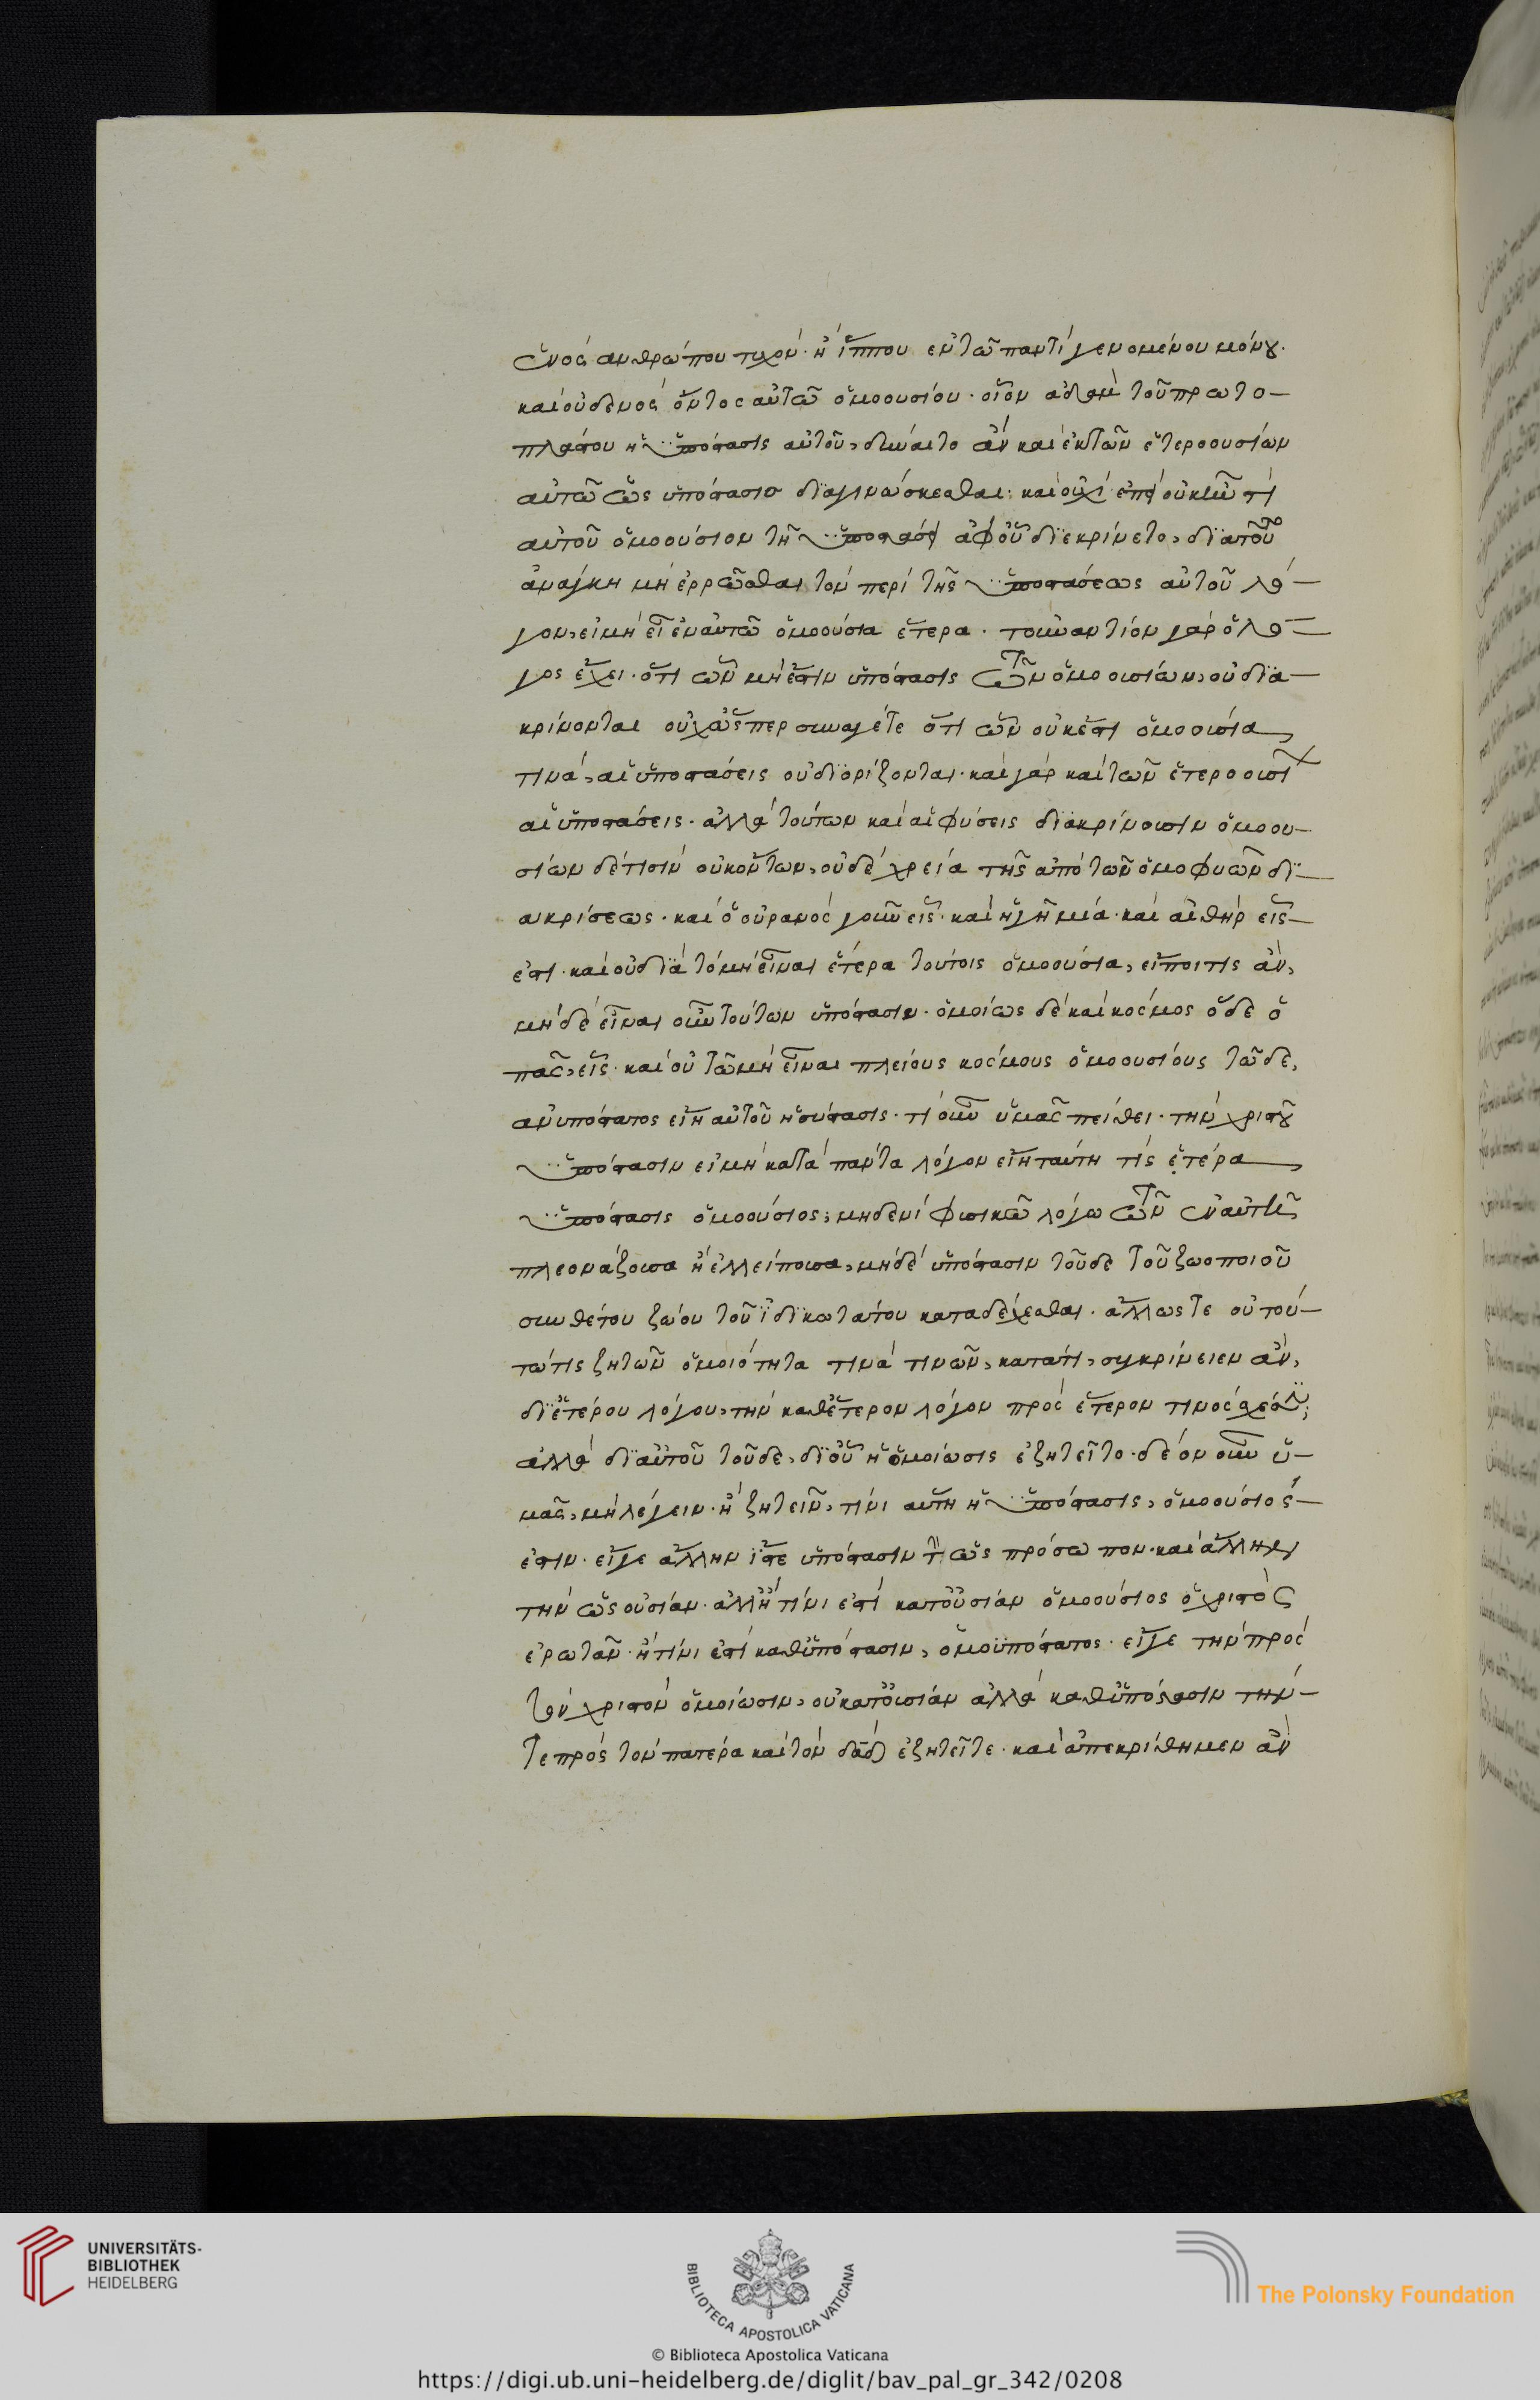 ἑνὸς ἀνθρώπου τυχὸν· ἢ ἵππου ἐν τῶ παντὶ γενομένου μόνου·
καὶ οὐδενὸς ὄντος αὐτῶ ὁμοουσίου· οἷον ἀδὰμ τοῦ πρωτο–
πλάστου ἡ ὑπόστασις αὐτοῦ, δύναιτο ἂν καὶ ἐκ τῶν ἑτεροουσίων
αὐτῶ ὡς ὑπόστασις διαγινώσκεσθαι· καὶ οὐχὶ ἐπεὶ οὐκ ἦν τὶ
αὐτοῦ ὁμοούσιον τῆ ὑποστάσει ἀφ' οὗ διεκρίνετο, διατοῦτο
ἀνάγκη μὴ ἐρρῶσθαι τὸν περὶ τῆς ὑποστάσεως αὐτοῦ λό–
γον, εἰ μὴ εἴη ἐν αὐτῶ ὁμοούσια ἕτερα· τοὐναντίον γὰρ ὁ λό–
γος ἔχει· ὅτι ὧν μή ἐστιν ὑπόστασις τῶν ὁμοουσίων, οὐ δια–
κρίνονται οὐχ ὥσπερ συνάγετε ὅτι ὧν οὐκ ἔστι ὁμοούσια
τινὰ, αἱ ὑποστάσεις οὐ διορίζονται· καὶ γὰρ καὶ τῶν ἑτεροουσίων
αἱ ὑποστάσεις· ἀλλὰ τούτων καὶ αἱ φύσεις διακρίνουσιν ὁμοου–
σίων δέ τισιν οὐκ ὄντων, οὐδὲ χρεία τῆς ἀπὸ τῶν ὁμοφυῶν δι–
ακρίσεως· καὶ ὁ οὐρανὸς γοῦν εἷς· καὶ ἡ γῆ μία· καὶ αἰθὴρ εἷς–
ἐστι· καὶ οὐ διὰ τὸ μὴ εἶναι ἕτερα τούτοις ὁμοούσια, εἴποι τις ἂν,
μὴ δὲ εἶναι οὖν τούτων ὑπόστασιν· ὁμοίως δὲ καὶ κόσμος ὅδε ὁ
πᾶς, εἷς· καὶ οὐ τῶ μὴ εἶναι πλείους κόσμους ὁμοουσίους τῶδε,
ἀνυπόστατος εἴη αὐτοῦ ἡ σύστασις· τί οὖν ὑμᾶς πείθει· τὴν χριστοῦ
ὑπόστασιν εἰ μὴ κατὰ πάντα λόγον εἴη ταύτη τίς ἑτέρα
ὑπόστασις ὁμοούσιος, μηδενὶ φυσικῶ λόγω τῶν ἐν αὐτῆ
πλεονάζουσα ἢ ἐλλείπουσα, μὴδὲ ὑπόστασιν τοῦδε τοῦ ζωοποιοῦ
συνθέτου ζώου τοῦ ἰδικωτάτου καταδέχεσθαι· ἄλλως τε οὐ τού–
τω τις ζητῶν ὁμοιότητα τινά τινων, κατάτι, συγκρίνειεν ἂν,
δι' ἑτέρου λόγου, τὴν καθ' ἕτερον λόγον πρὸς ἕτερον τινος
ἀλλὰ δι' αὐτοῦ τοῦδε, δι' οὗ ἡ ὁμοίωσις ἐζητεῖτο· δέον οὖν ὑ–
μᾶς, μὴ λέγειν· ἢ ζητεῖν, τίνι αὕτη ἡ ὑπόστασις, ὁμοούσιός–
ἐστιν· εἴγε ἄλλην ἴστε ὑπόστασιν τὴν ὡς πρόσωπον· καὶ ἄλλην
τὴν ὡς οὐσίαν· ἀλλ' ἢ τίνι ἐστὶ κατ' οὐσίαν ὁμοούσιος ὁ χριστὸς
ἐρωτᾶν· ἢ τίνι ἐστὶ καθ' ὑπόστασιν, ὁμοϋπόστατος· εἴγε τὴν πρὸς
τὸν χριστὸν ὁμοίωσιν, οὐ κατ' οὐσίαν ἀλλὰ καθ' ὑπόστασιν τὴν–
τε πρὸς τὸν πατέρα καὶ τὸν δαδ ἐζητεῖτε· καὶ ἀπεκρίθημεν ἂν
UNIVERSITÄTS-
BIBLIOTHEK
HEIDELBERG
BIBLIOTECA APOSTOLICA VATICANA
The Polonsky Foundation
© Biblioteca Apostolica Vaticana
https://digi.ub.uni-heidelberg.de/diglit/bav_pal_gr_342/0208